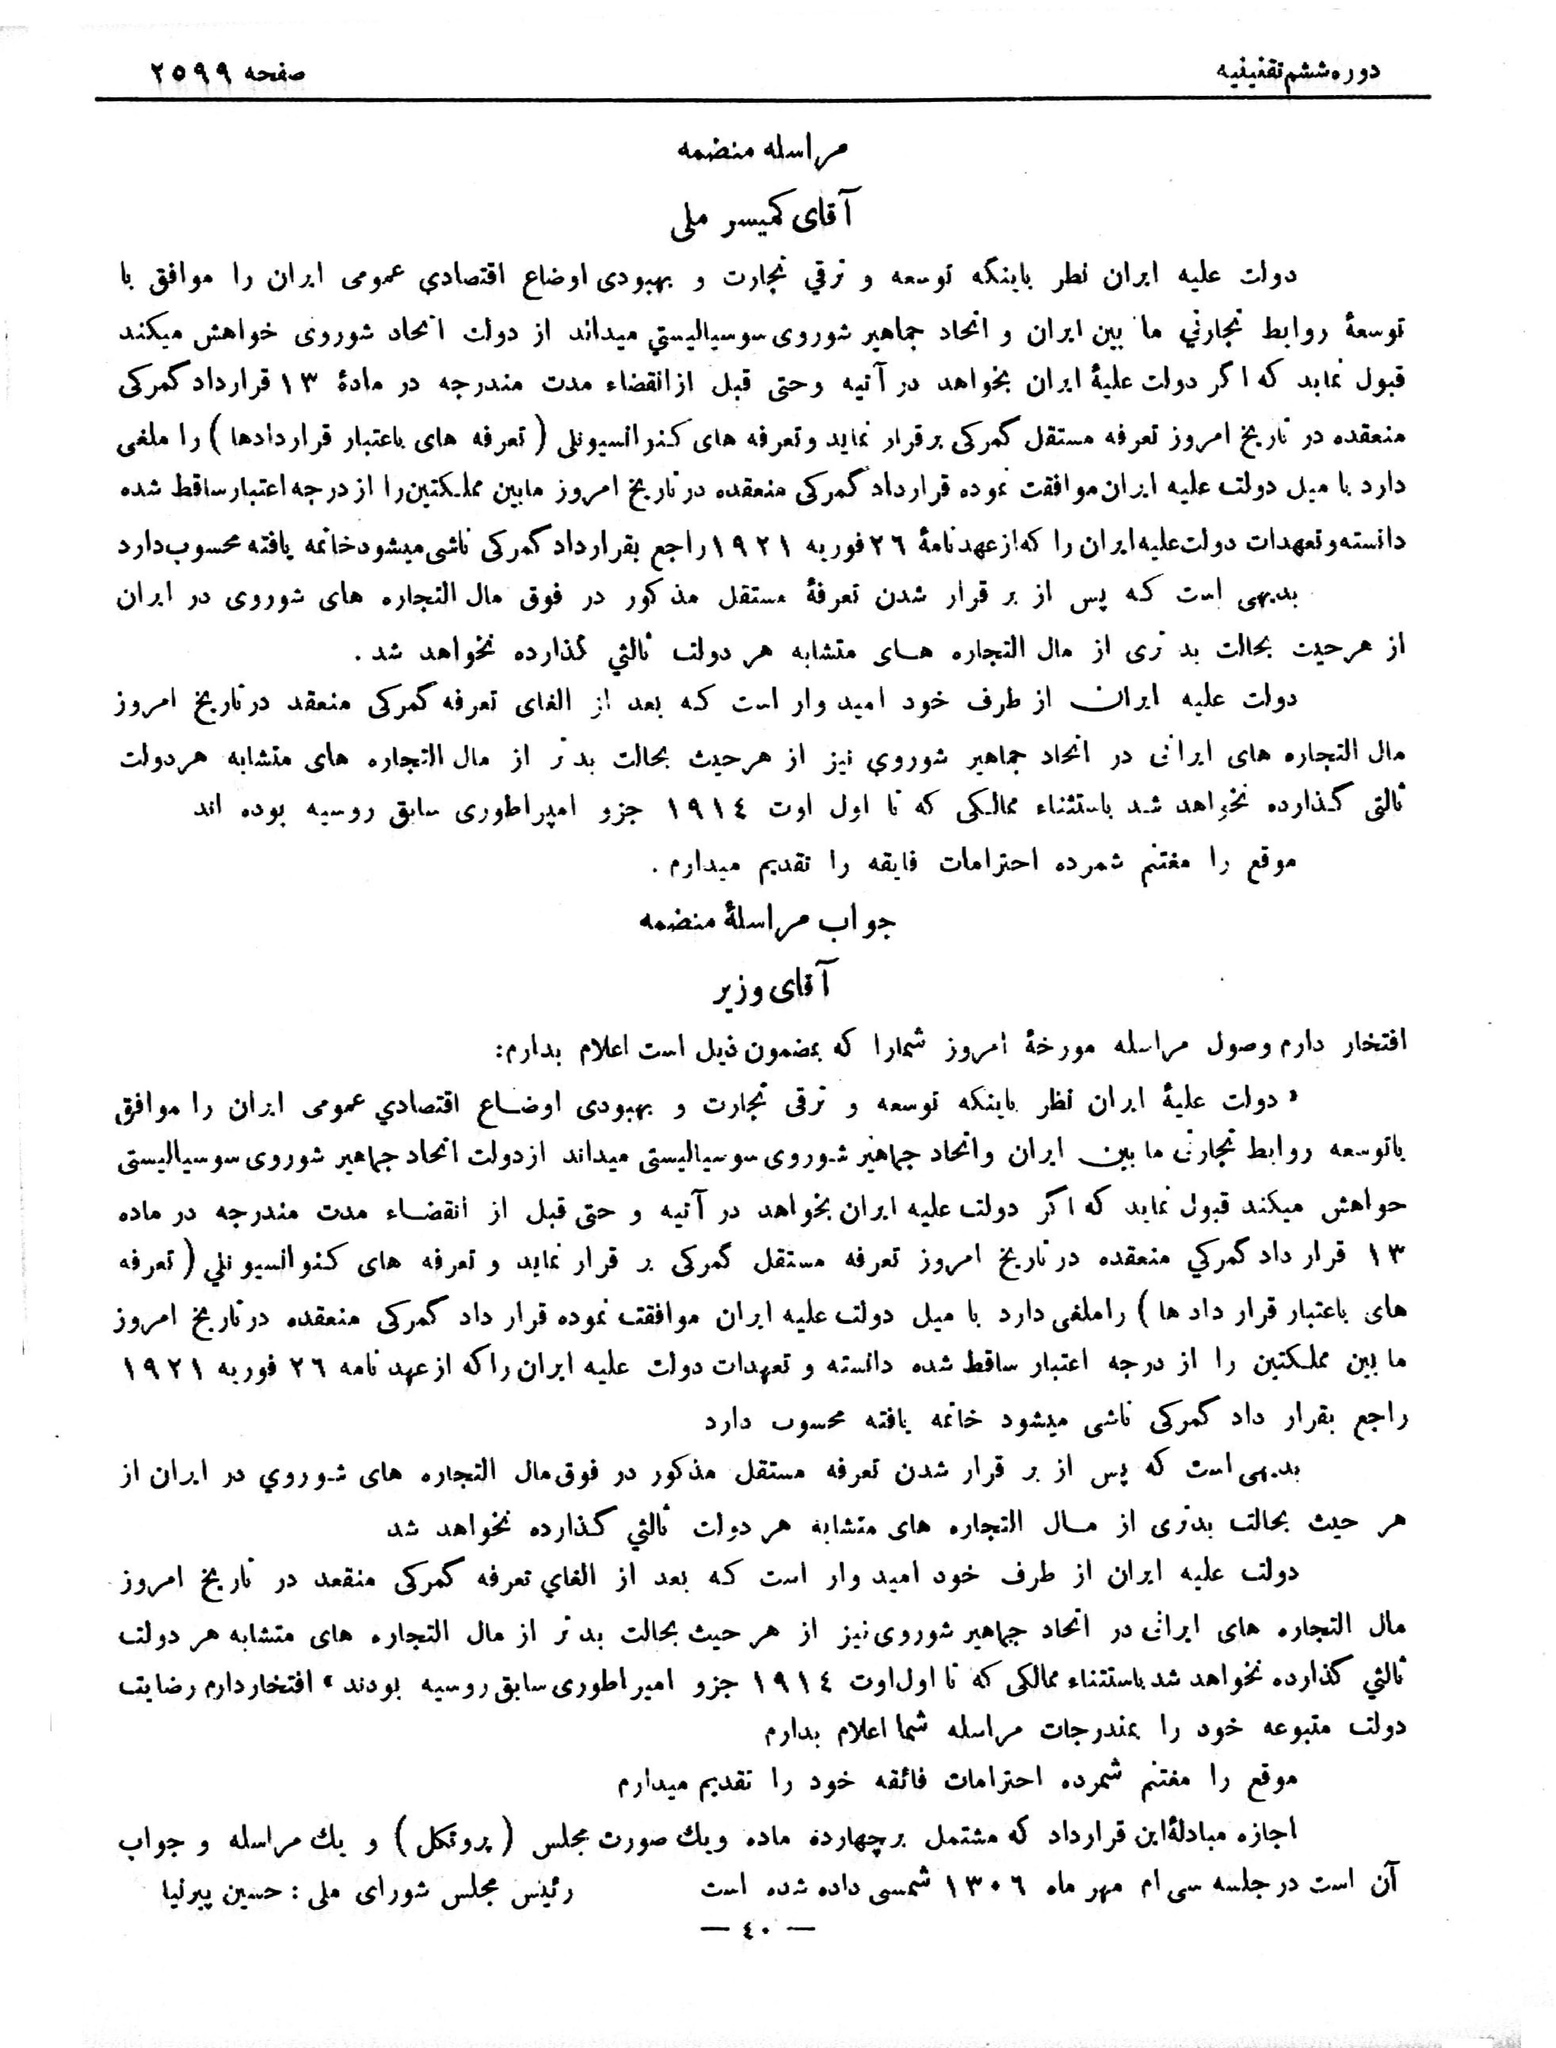 دوره ششم تقنینیه
صفحه ۲۵۹۹
مراسله منضمه
آقای کمیسر ملی
دولت علیه ایران نظر باینکه توسعه و ترقي تجارت و بهبودی اوضاع اقتصادي عمومی ایران را موافق با
توسعهٔ روابط تجارتي ما بین ایران و اتحاد جماهیر شوروی سوسیالیستي میداند از دولت اتحاد شوروی خواهش میکند
قبول نماید که اگر دولت علیهٔ ایران بخواهد در آتیه و حتی قبل از انقضاء مدت مندرجه در مادهٔ ۱۳ قرارداد گمرکی
منعقده در تاریخ امروز تعرفه مستقل گمرکی برقرار نماید و تعرفه های کنوانسیونلی ( تعرفه های باعتبار قراردادها ) را ملغی
دارد با میل دولت علیه ایران موافقت نموده قرارداد گمرکی منعقده در تاریخ امروز مابین مملکتین را از درجه اعتبار ساقط شده
دانسته و تعهدات دولت علیه ایران را که از عهدنامهٔ ۲۶ فوریه ۱۹۲۱ راجع بقرارداد گمرکی ناشی میشود خاتمه یافته محسوب دارد
بدیهی است که پس از بر قرار شدن تعرفهٔ مستقل مذکور در فوق مال التجاره های شوروی در ایران
از هرحیث بحالت بد تری از مال التجاره های متشابه هر دولت ثالثي گذارده نخواهد شد .
دولت علیه ایران از طرف خود امید وار است که بعد از الغای تعرفه گمرکی منعقد در تاریخ امروز
مال التجاره های ایرانی در اتحاد جماهیر شوروي نیز از هرحیث بحالت بد تر از مال التجاره های متشابه هردولت
ثالثی گذارده نخواهد شد باستثناء ممالکی که تا اول اوت ۱۹۱٤ جزو امپراطوری سابق روسیه بوده اند
موقع را مغتنم شمرده احترامات فایقه را تقدیم میدارم .
جواب مراسلهٔ منضمه
آقای وزیر
افتخار دارم وصول مراسله مورخهٔ امروز شمارا که بمضمون ذیل است اعلام بدارم:
« دولت علیهٔ ایران نظر باینکه توسعه و ترقی تجارت و بهبودی اوضاع اقتصادي عمومی ایران را موافق
باتوسعه روابط تجارتی ما بین ایران واتحاد جماهیر شوروی سوسیالیستی میداند ازدولت اتحاد جماهیر شوروی سوسیالیستی
خواهش میکند قبول نماید که اگر دولت علیه ایران بخواهد در آتیه و حتی قبل از انقضاء مدت مندرجه در ماده
۱۳ قرار داد گمرکي منعقده در تاریخ امروز تعرفه مستقل گمرکی بر قرار نماید و تعرفه های کنوانسیونلي ( تعرفه
های باعتبار قرار داد ها ) راملغی دارد با میل دولت علیه ایران موافقت نموده قرار داد گمرکی منعقده در تاریخ امروز
ما بین مملکتین را از درجه اعتبار ساقط شده دانسته و تعهدات دولت علیه ایران راکه از عهد نامه ۲۶ فوریه ۱۹۲۱
راجع بقرار داد گمرکی ناشی میشود خاتمه یافته محسوب دارد
بدیهی است که پس از بر قرار شدن تعرفه مستقل مذکور در فوق مال التجاره های شوروي در ایران از
هر حیث بحالت بدتری از مال التجاره های متشابه هر دولت ثالثي گذارده نخواهد شد
دولت علیه ایران از طرف خود امید وار است که بعد از الغاي تعرفه گمرکی منقعد در تاریخ امروز
مال التجاره های ایرانی در اتحاد جماهیر شوروی نیز از هر حیث بحالت بد تر از مال التجاره های متشابه هر دولت
ثالثي گذارده نخواهد شد باستثناء ممالکی که تا اول اوت ۱۹۱٤ جزو امپراطوری سابق روسیه بودند » افتخار دارم رضایت
دولت متبوعه خود را بمندرجات مراسله شما اعلام بدارم
موقع را مغتنم شمرده احترامات فائقه خود را تقدیم میدارم
اجازه مبادلهٔ این قرارداد که مشتمل بر چهارده ماده ویك صورت مجلس ( پروتکل ) و یك مراسله و جواب
آن است در جلسه سی ام مهر ماه ۱۳۰۶ شمسی داده شده است رئیس مجلس شورای ملی : حسین پیرنیا
— ٤۰ —